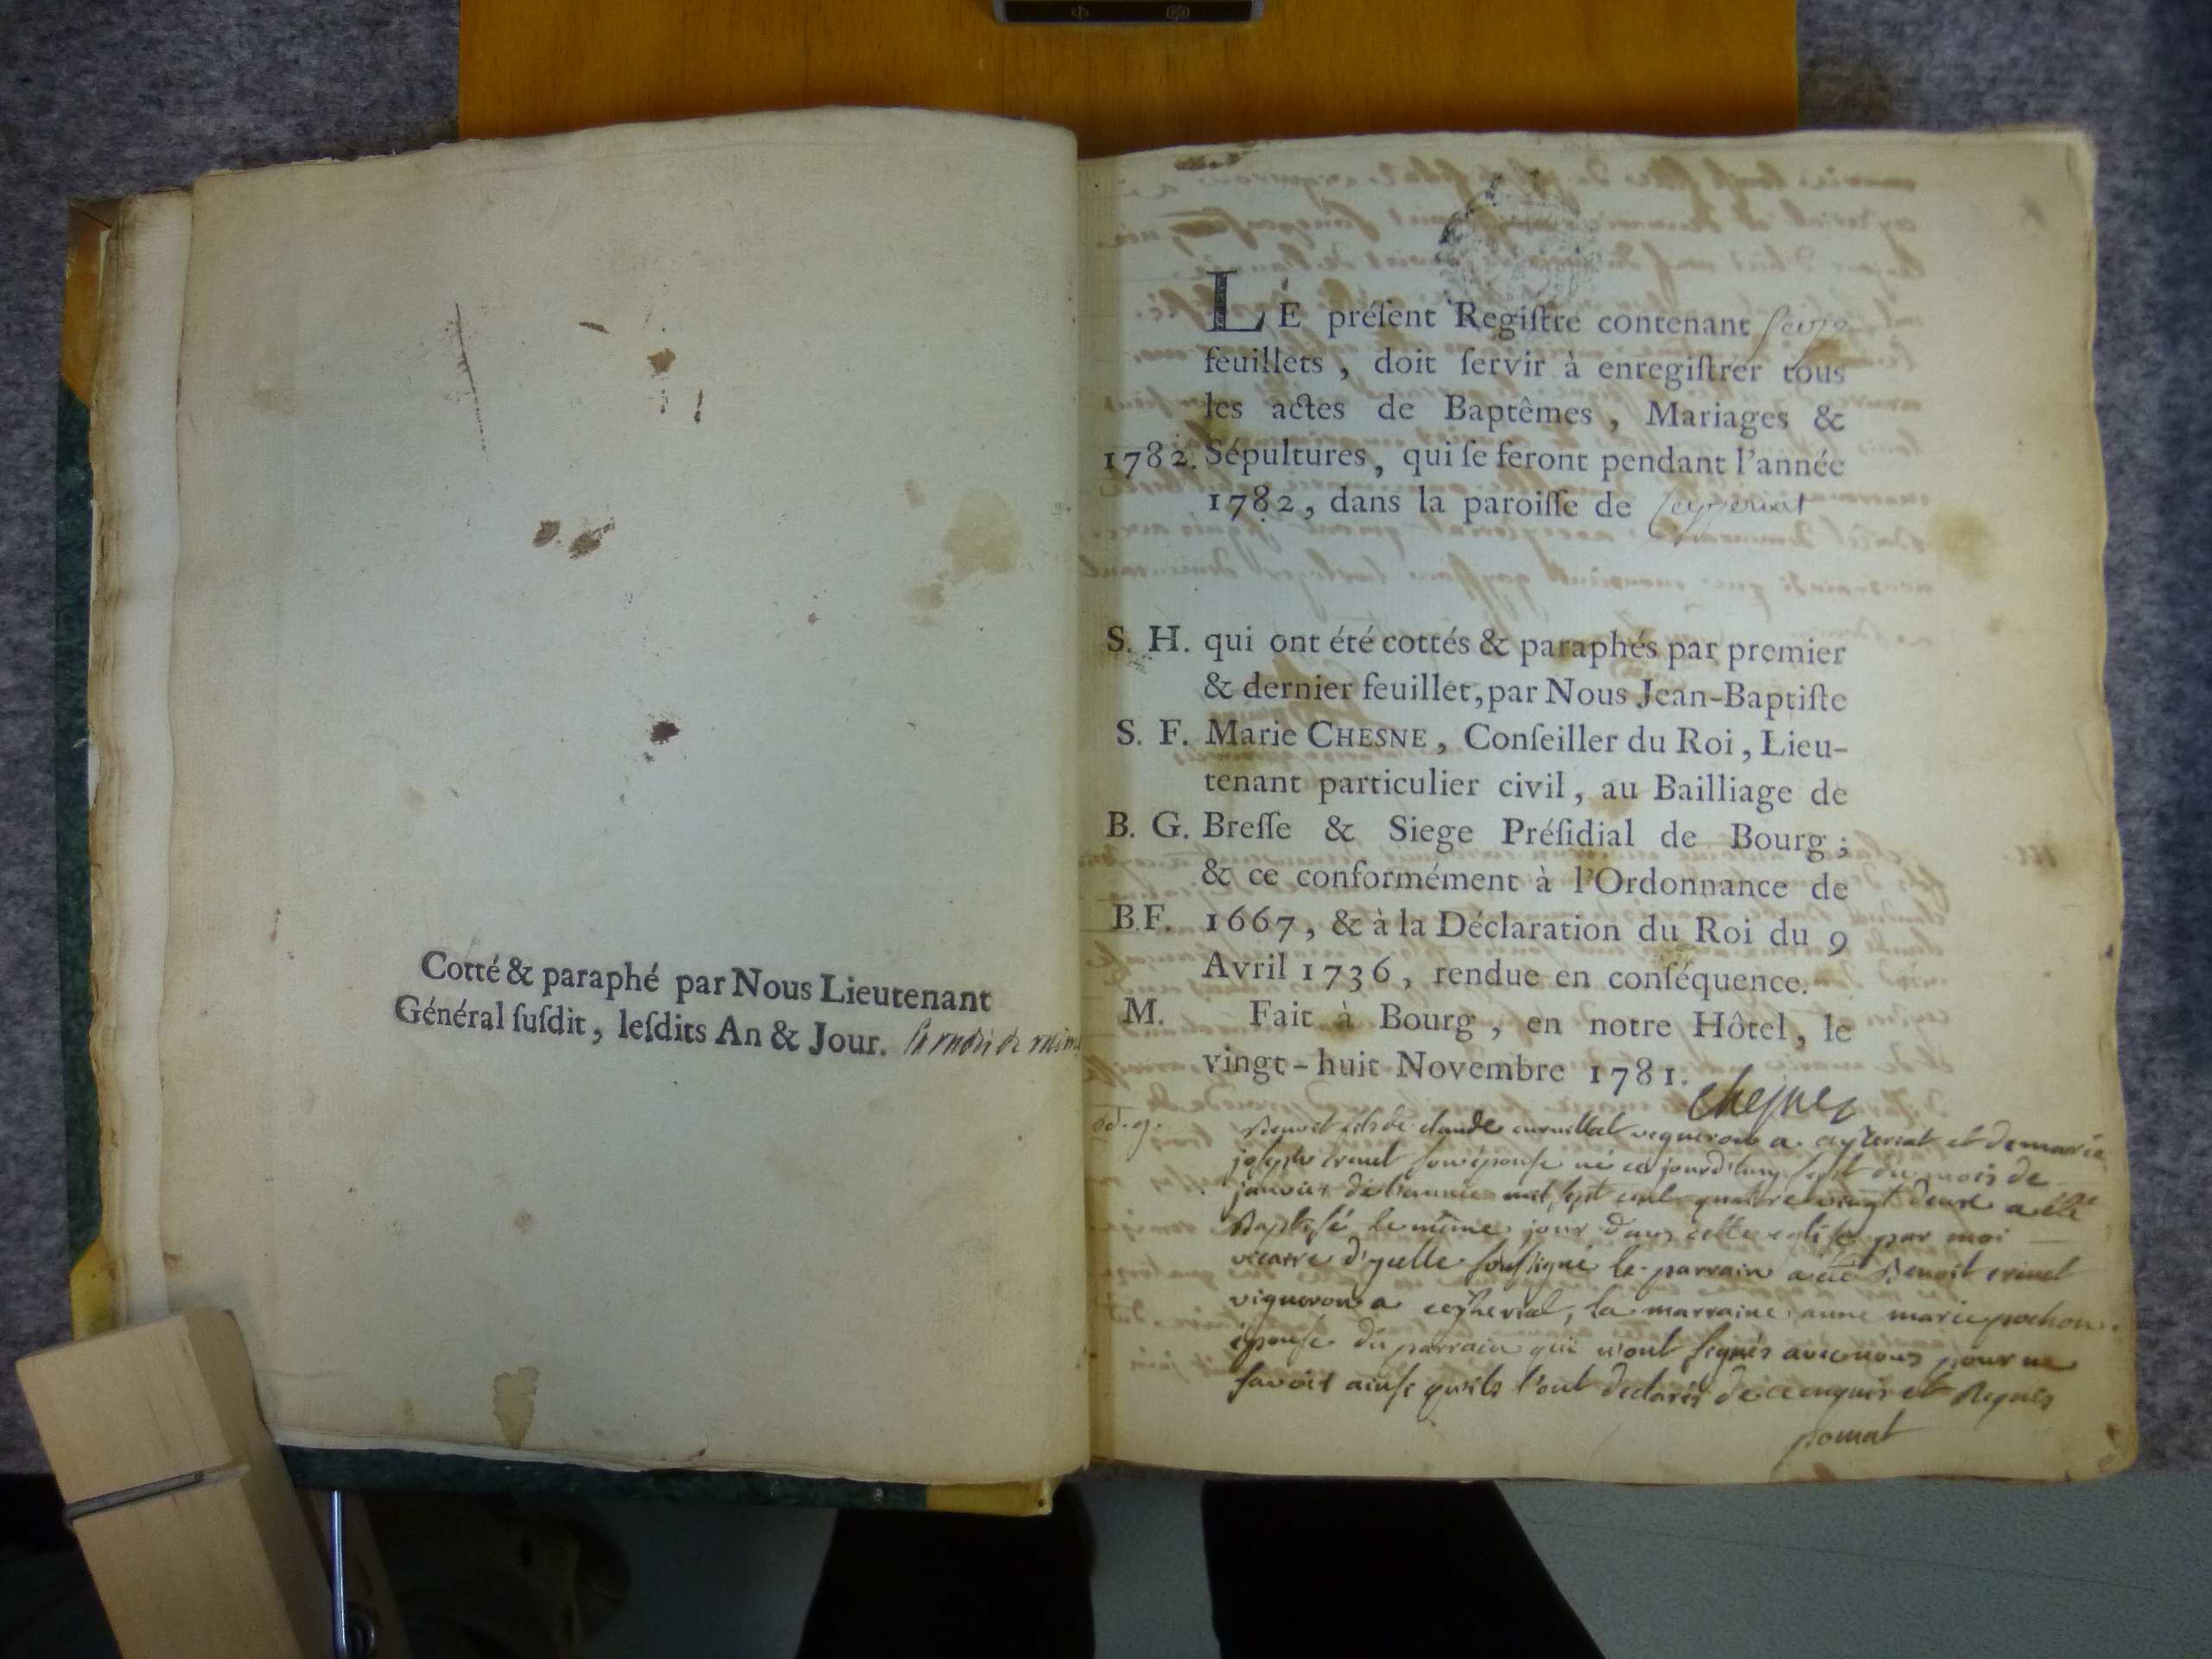 Cotté & paraphé par Nous Lieutenant
Général ſuſdit, leſdits An & Jour.
LE préſent Regiſtre contenant ſeize
feuillets, doit ſervir à enregiſtrer tous
les actes de Baptêmes, Mariages &
1782. Sépultures, qui ſe feront pendant l'année
1782, dans la paroiſſe de Ceyzeriat
S. H. qui ont été cottés & paraphés par premier
& dernier feuillet, par Nous Jean-Baptiſte
S. F. Marie CHESNE, Conſeiller du Roi, Lieu-
tenant particulier civil, au Bailliage de
B. G. Breſſe & Siege Préſidial de Bourg;
& ce conformément à l'Ordonnance de
B.F. 1667, & à la Déclaration du Roi du 9
Avril 1736, rendue en conſéquence.
M. Fait à Bourg, en notre Hôtel, le
vingt-huit Novembre 1781.
chesne
bd. g. Benoit fils de claude vigneron a ceyzeriat et de marie
joseph son épouse né ce jourd'huy sept du mois de
janvier de l'année mil sept cent quatre vingt deux a été
Baptisé le même jour dans cette eglise par moi
vicaire d'ycelle soussigné le parrain a été Benoit
vigneron a ceyzeriat, la marraine anne marie pochon
épouse du parrain qui n'ont signés avec nous pour ne
savoir ainsi qu'ils l'ont declarés de ce enquis et Requis